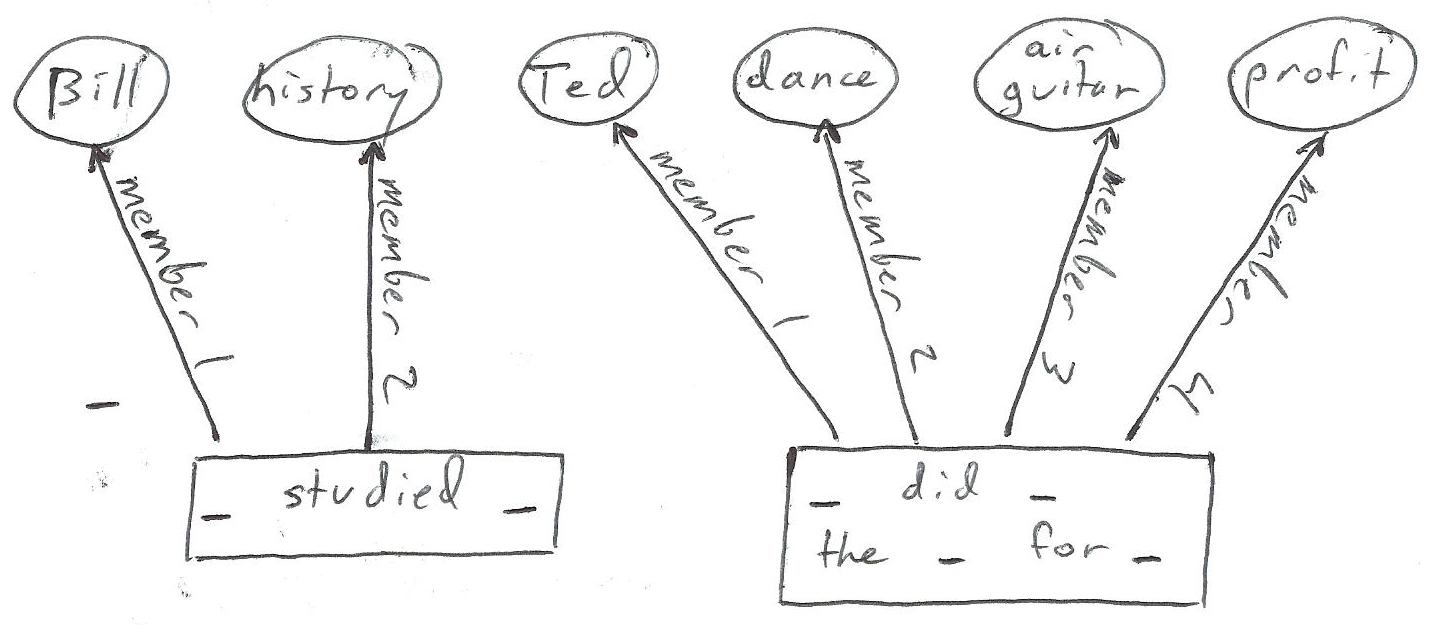 Bill
history
Ted
dance
air
guitar
profit
member 1
member 2
member 1
member 2
member 3
member 4
_ studied _
_ did _
the _ for _